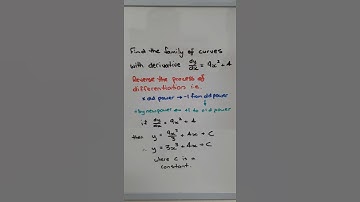 Find the family of curves
with derivative dy/dx = 9x² + 4
Reverse the process of
differentiation i.e.
x old power → -1 from old power
÷ by new power ← +1 to old power
if dy/dx = 9x² + 4
then y = 9x³/3 + 4x + C
∴ y = 3x³ + 4x + C
where C is a
constant.